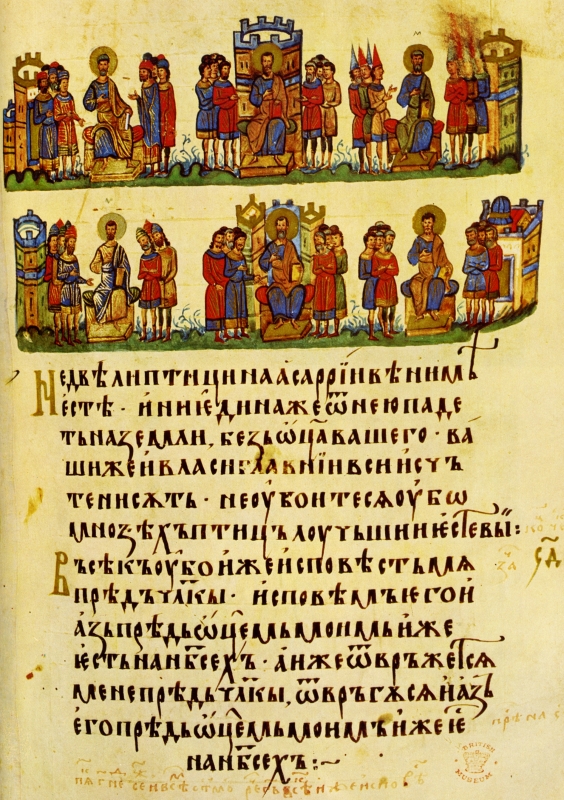 Не двѣ ли птици на асаррїи вѣним
ѣстѣ · и ни едина же ѿ нею паде
тъ на земли, без ѡц҃а вашего · ва
ши же и власи главнїи вси исъч
тени сѫть · не оубоитесѧ оубѡ
мнозѣхъ птицъ лоучьшии есте вы :
Въсѣкъ оубо иже исповѣсть мѧ
прѣдъ чл҃кы · исповѣмъ его и
азь прѣдь ѡц҃емь моимь иже
ѥсть на нб҃сехъ · а иже ѿвръжетсѧ
мене прѣдь чл҃кы, ѿвръгѫсѧ и азь
его прѣдь ѡц҃емь моимъ иже ѥ
на нб҃сехъ :~
BRITISH
MUSEUM